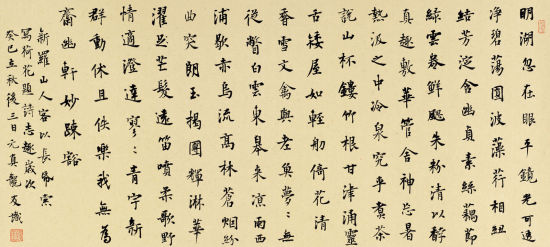 明湖忽在眼平鏡光可透
淨碧蕩圓波藻荇相紐
結芳泛含幽貞素絲藕節
綠雲养鮮颸朱粉清以靜
真趣敷華管舍神忘暑
熱汲之中冷泉究乎煑茶
說山杯鏤竹根甘津涌靈
舌矮屋如輕舠倚花清
香雪文禽與差魚夢
從瞥白雲泉皋来凉雨西
浦歇赤烏流高林蒼烟
曲突朗玉楊團輝淋華
濯足芒髮遠笛噴柔歌野
情適澄達寥青宇新
群動休且佚樂我無為
齋幽軒妙踈豁
新羅山人客以長
寫荷花題詩志趣歲次
癸巳立秋後三日元真龍友識